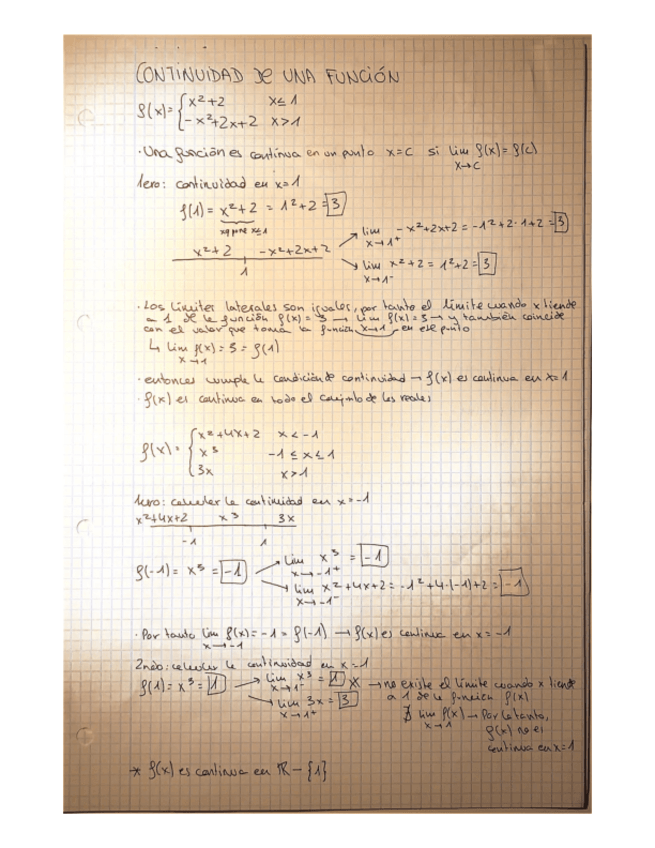 CONTINUIDAD DE UNA FUNCIÓN
f(x)= { x²+2 x≤1
-x²+2x+2 x>1
· Una función es continua en un punto x=c si lim f(x)=f(c)
x→c
1ero: continuidad en x=1
f(1)= x²+2 = 1²+2 = 3
x≤1
lim -x²+2x+2 = -1²+2·1+2 = 3
x→1⁺
x²+2 -x²+2x+2
1
lim x²+2 = 1²+2 = 3
x→1⁻
· Los límites laterales son iguales, por tanto el límite cuando x tiende
a 1 de la función f(x) = 3 → lim f(x) = 3 → y también coincide
con el valor que toma la función x→1 en ese punto
↳ lim f(x) = 3 = f(1)
x→1
· entonces cumple la condición de continuidad → f(x) es continua en x=1
· f(x) es continua en todo el conjunto de los reales
f(x)= { x²+4x+2 x<-1
x³ -1≤x≤1
3x x>1
1ero: calcular la continuidad en x=-1
x²+4x+2 x³ 3x
-1 1
f(-1)= x³ = -1
lim x³ = -1
x→-1⁺
lim x²+4x+2 = -1²+4·(-1)+2 = -1
x→-1⁻
· Por tanto lim f(x) = -1 = f(-1) → f(x) es continua en x=-1
x→-1
2ndo: calcular la continuidad en x=1
f(1)= x³ = 1
lim x³ = 1
x→1⁻
lim 3x = 3
x→1⁺
→ no existe el límite cuando x tiende
a 1 de la función f(x)
∄ lim f(x) → Por lo tanto,
x→1
f(x) no es
continua en x=1
* f(x) es continua en ℝ - {1}